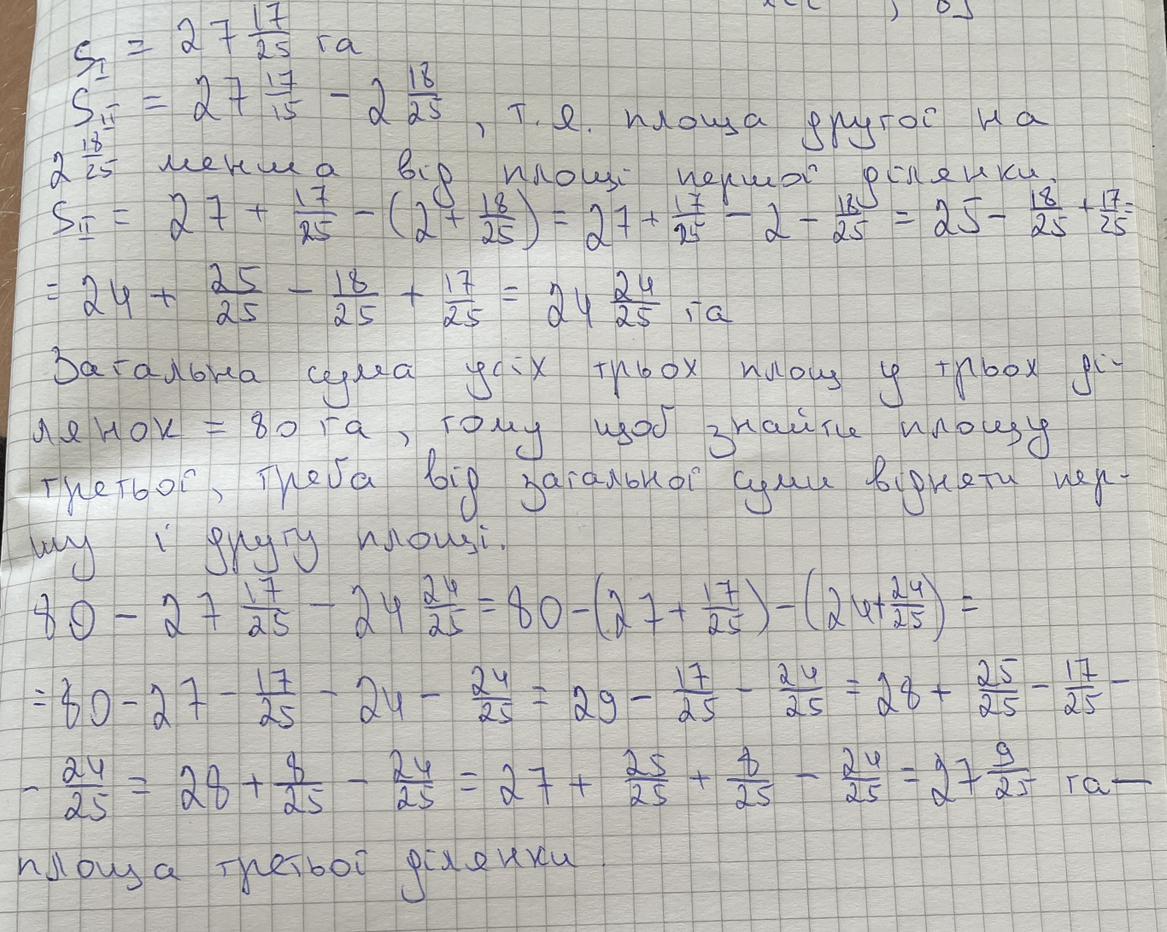 S_I = 27 17/25 га
S_II = 27 17/15 - 2 18/25, т.я. площа другої на
2 18/25 менша від площі першої ділянки.
S_II = 27 + 17/25 - (2 + 18/25) = 27 + 17/25 - 2 - 18/25 = 25 - 18/25 + 17/25 =
= 24 + 25/25 - 18/25 + 17/25 = 24 24/25 га
Загальна сума усіх трьох площ у трьох ді-
лянок = 80 га, тому щоб знайти площу
третьої, треба від загальної суми відняти пер-
шу і другу площі.
80 - 27 17/25 - 24 24/25 = 80 - (27 + 17/25) - (24 + 24/25) =
= 80 - 27 - 17/25 - 24 - 24/25 = 29 - 17/25 - 24/25 = 28 + 25/25 - 17/25 -
- 24/25 = 28 + 8/25 - 24/25 = 27 + 25/25 + 8/25 - 24/25 = 27 9/25 га —
площа третьої ділянки.